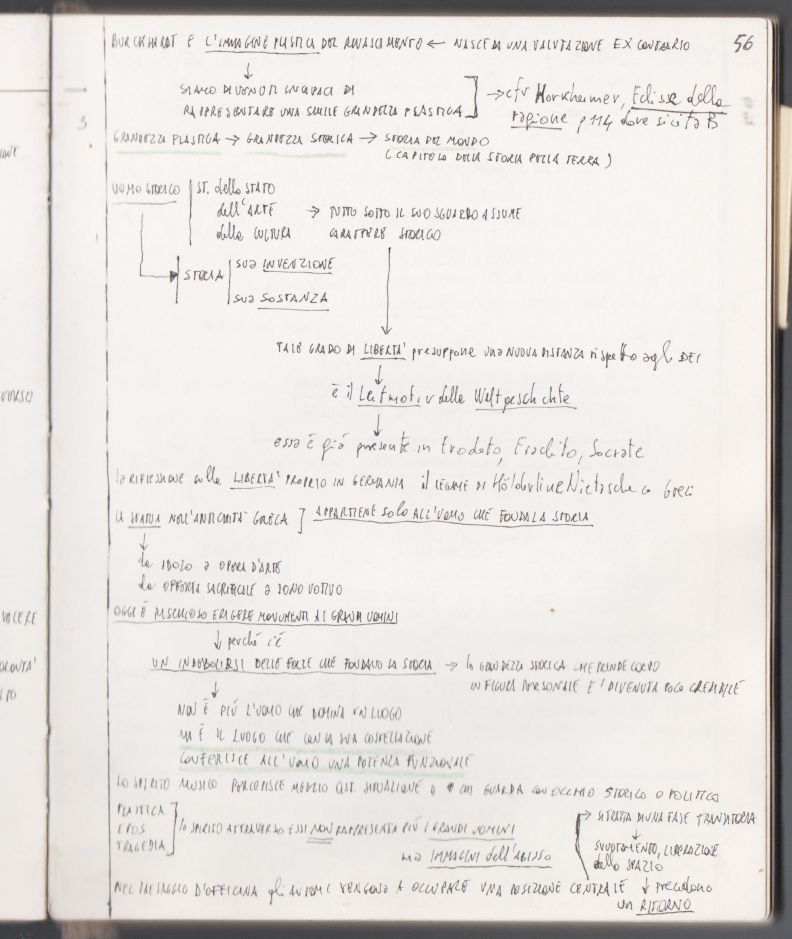 56
BURCKHARDT E L'IMMAGINE PLASTICA DEL RINASCIMENTO ← NASCE DA UNA VALUTAZIONE EX CONTRARIO
↓
SIAMO DIVENUTI INCAPACI DI
RAPPRESENTARE UNA SIMILE GRANDEZZA PLASTICA ] → cfr Horkheimer, Eclisse della
ragione p 114 dove si cita B
GRANDEZZA PLASTICA → GRANDEZZA STORICA → STORIA DEL MONDO
(CAPITOLO DELLA STORIA DELLA TERRA)
UOMO STORICO | ST. dello STATO
dell'ARTE → TUTTO SOTTO IL SUO SGUARDO ASSUME
della CULTURA CARATTERE STORICO
→ STORIA | sua INVENZIONE
sua SOSTANZA
TALE GRADO DI LIBERTA' presuppone una NUOVA DISTANZA rispetto agli DEI
↓
è il Leitmotiv della Weltgeschichte
↓
essa è già presente in Erodoto, Eraclito, Socrate
la RIFLESSIONE sulla LIBERTA' PROPRIO IN GERMANIA il LEGAME DI Hölderlin e Nietzsche Greci
LA STATUA NELL'ANTICHITA' GRECA ] APPARTIENE SOLO ALL'UOMO CHE FONDA LA STORIA
↓
da IDOLO a OPERA D'ARTE
da OFFERTA SACRIFICALE a DONO VOTIVO
OGGI È RISCHIOSO ERIGERE MONUMENTI AI GRANDI UOMINI
↓ perché c'è
UN INDEBOLIRSI DELLE FORZE CHE FONDAVO LA STORIA → la GRANDEZZA STORICA CHE PRENDE CORPO
IN FIGURA PERSONALE E' DIVENUTA POCO CREDIBILE
↓
NON È PIÙ L'UOMO CHE DOMINA UN LUOGO
MA È IL LUOGO CHE CON LA SUA COSTELLAZIONE
CONFERISCE ALL'UOMO UNA POTENZA FUNZIONALE
LO SPIRITO MUSICO PERCEPISCE MEGLIO QST. SITUAZIONE CHI GUARDA CON OCCHIO STORICO O POLITICO
PLASTICA
EPOS
TRAGEDIA ] lo SPIRITO ATTRAVERSO ESSI NON RAPPRESENTA PIÙ I GRANDI UOMINI
ma IMMAGINI dell'ABISSO
→ SI TRATTA DI UNA FASE TRANSITORIA
↓
SVUOTAMENTO, LIBERAZIONE
dello SPAZIO
NEL PAESAGGIO D'OFFICINA gli AUTOMI VENGONO A OCCUPARE UNA POSIZIONE CENTRALE ↓ precedono
un RITORNO